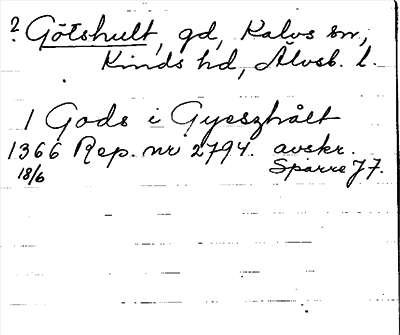 ? Götshult, gd, Kalvs sn,
Kinds hd, Älvsb. l.
1 Gods i Gyeszhålt
1366 Rep. nr 2794. avskr.
18/6 Sparre J 7.